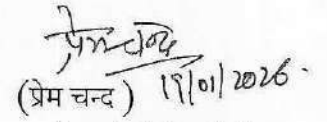 प्रेमचन्द
(प्रेम चन्द) 19/01/2026.